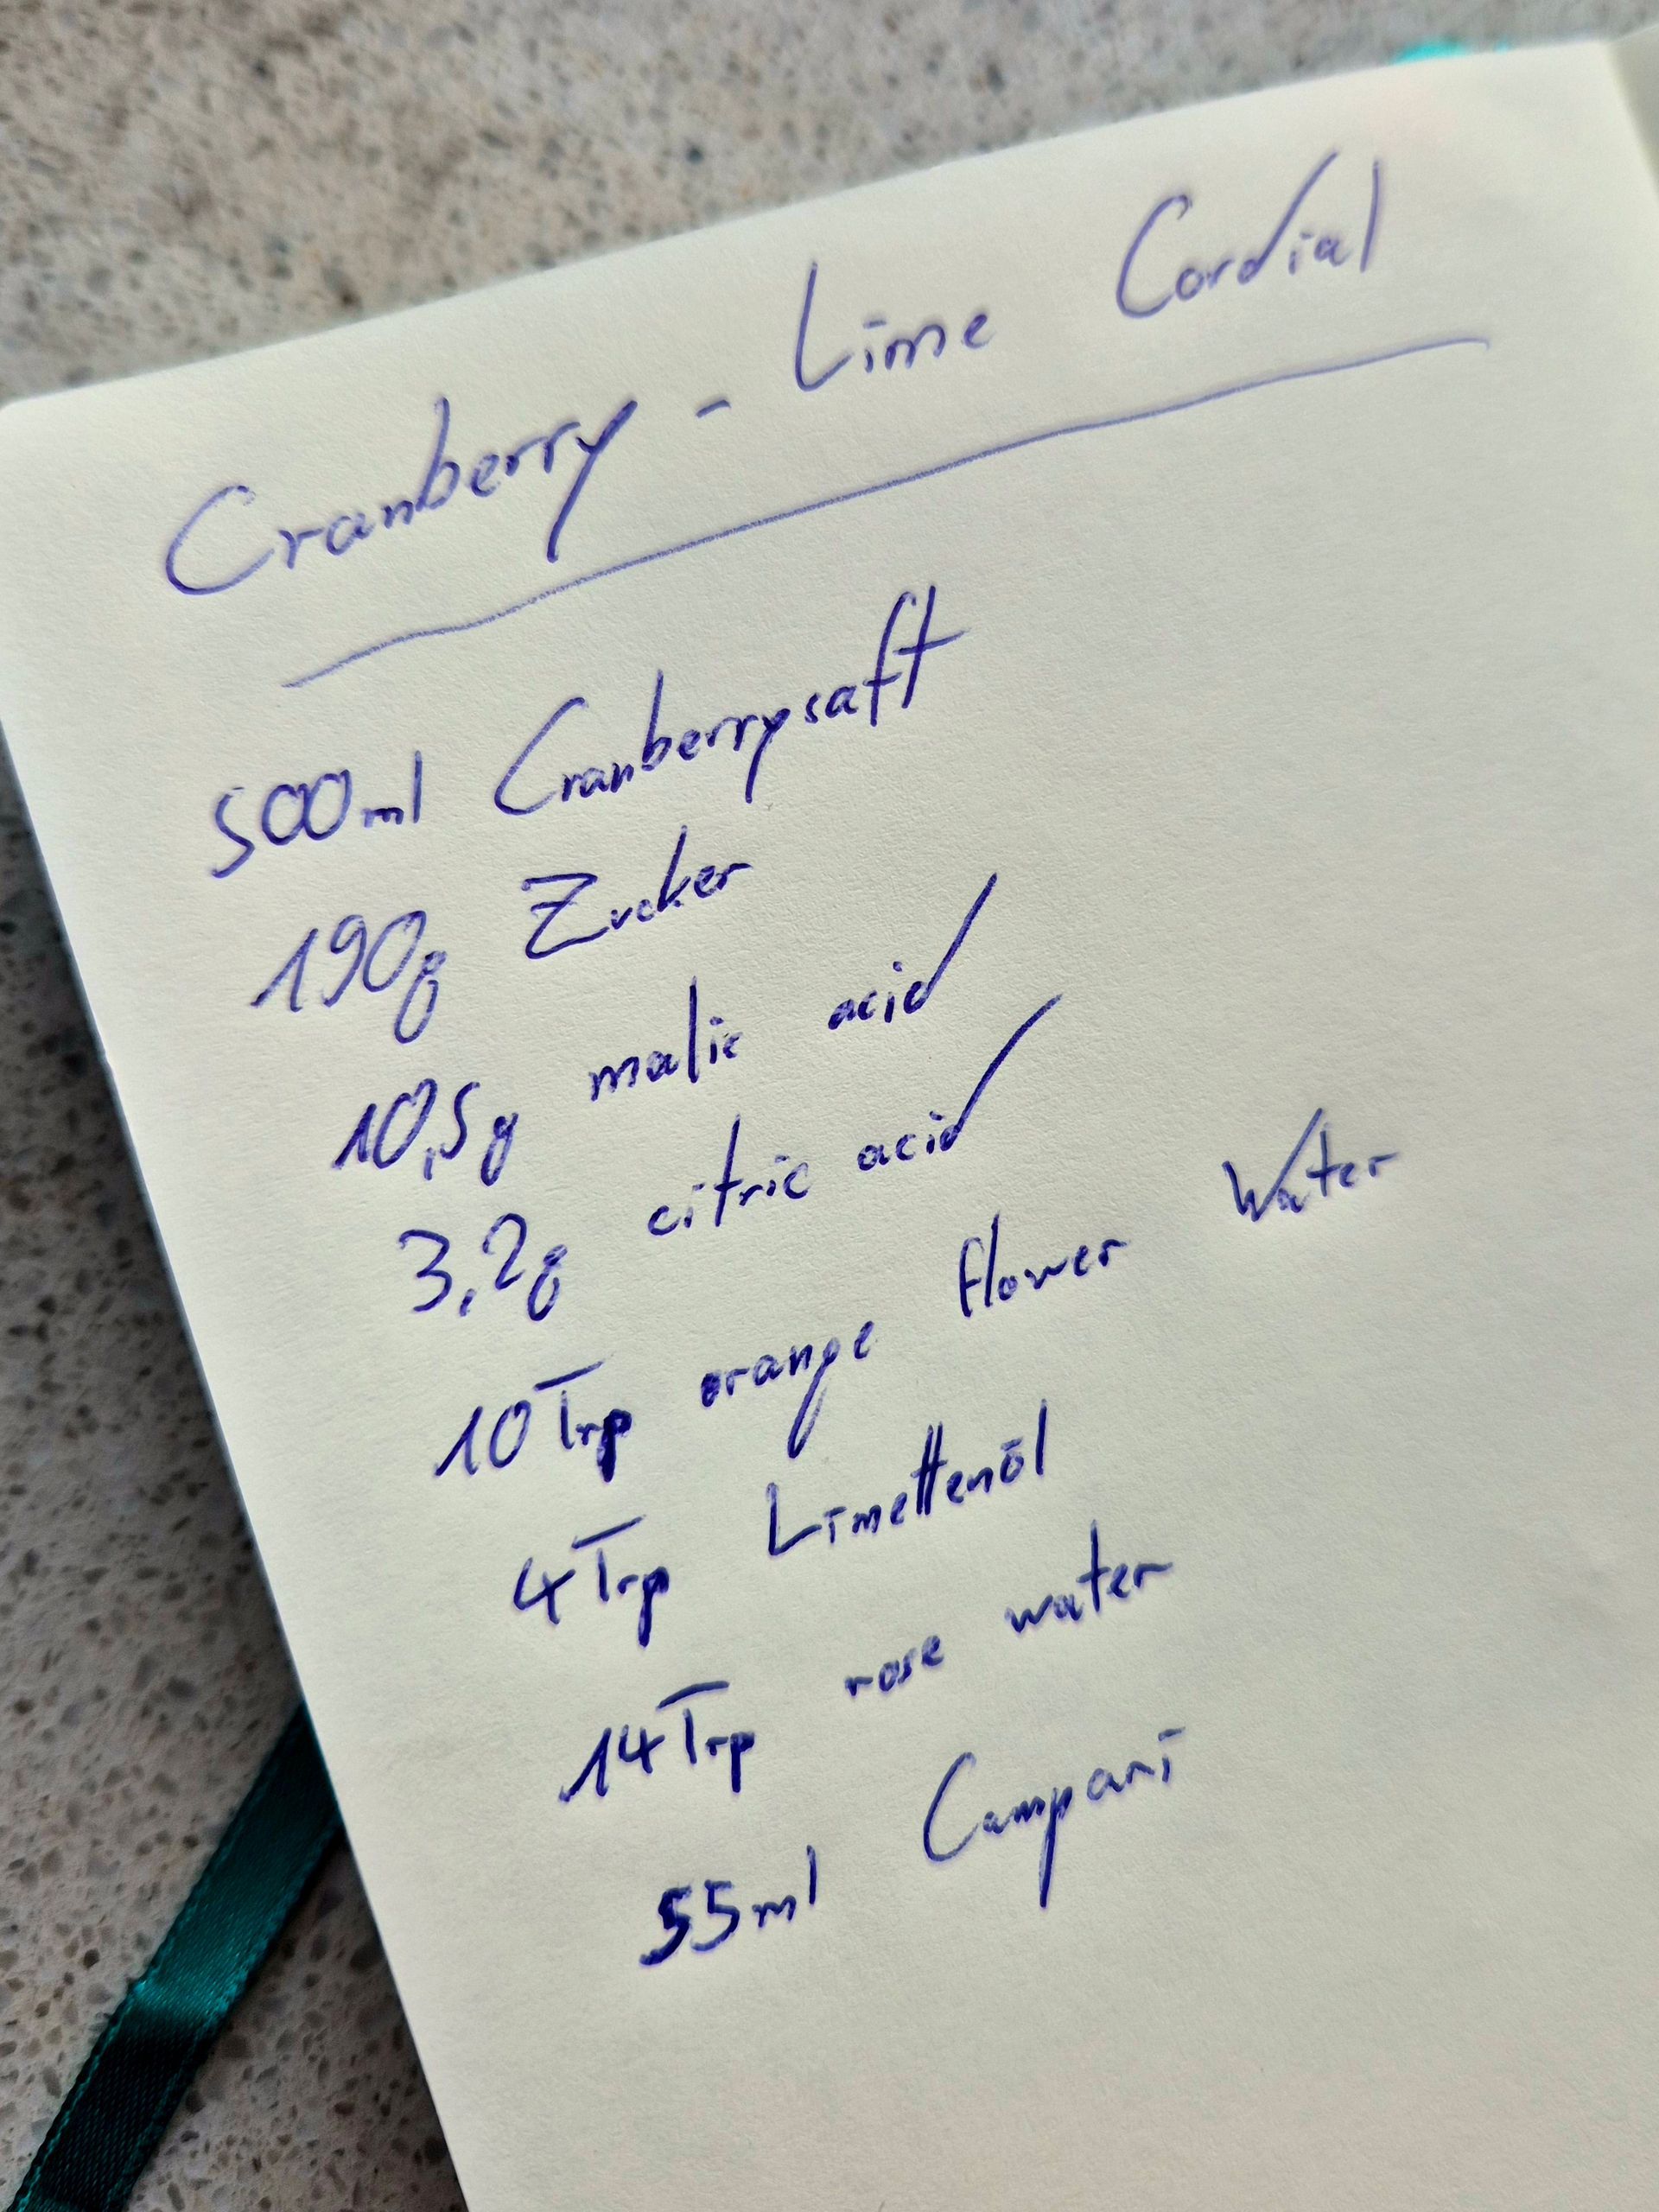 Cranberry - Lime Cordial
500ml Cranberrysaft
190g Zucker
10,5g malic acid
3,2g citric acid
10 Trp orange flower water
4 Trp Limettenöl
14 Trp rose water
55ml Campari